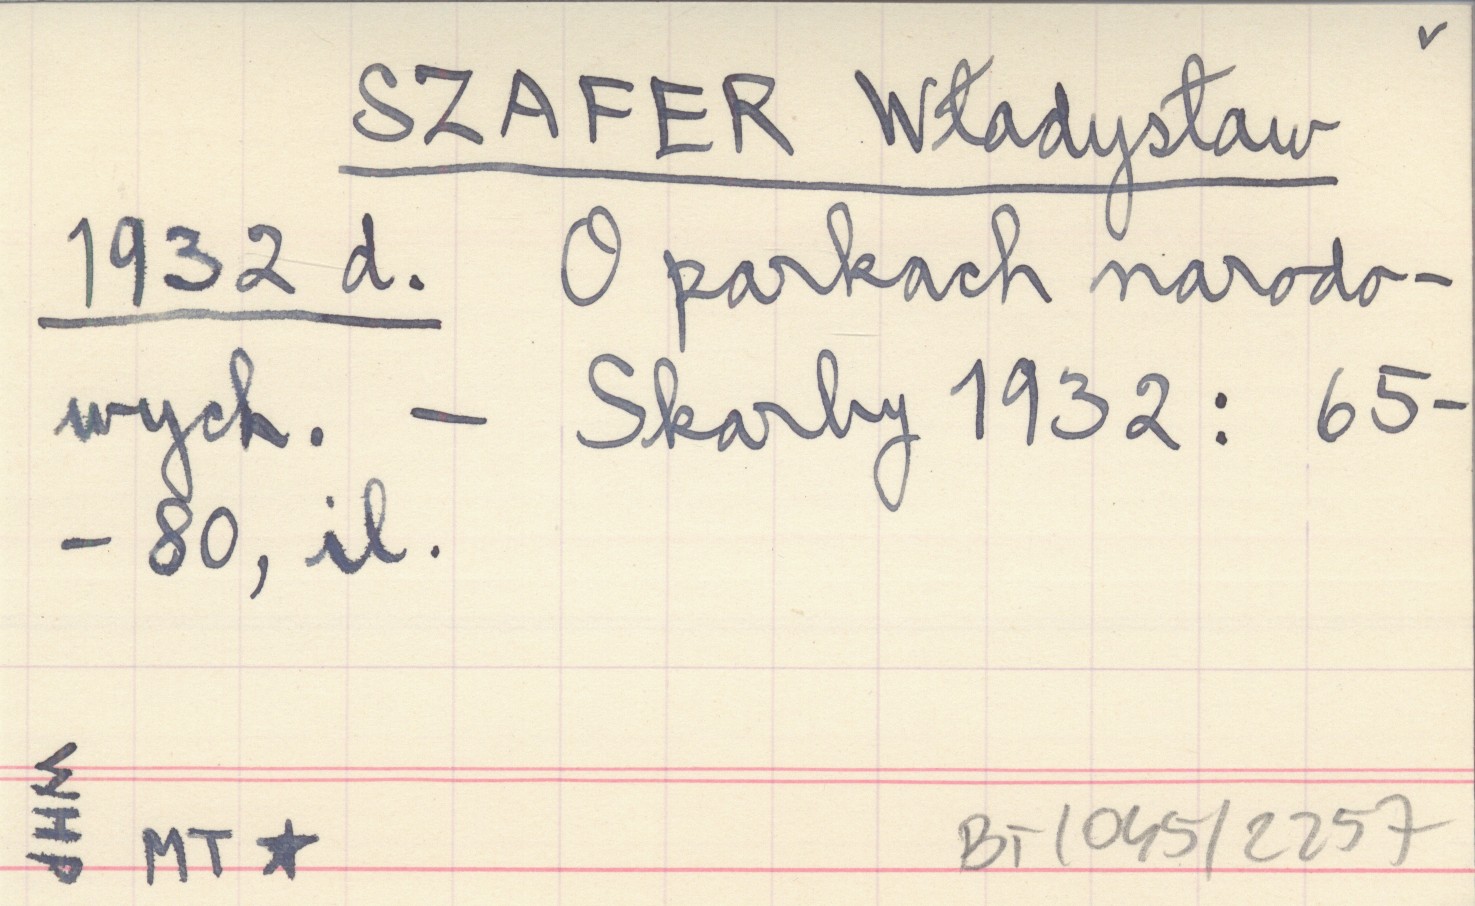 v
SZAFER Władysław
1932 d. O parkach narodo-
wych. — Skarby 1932: 65-
- 80, il.
WHP
MT ★
BT/045/2257